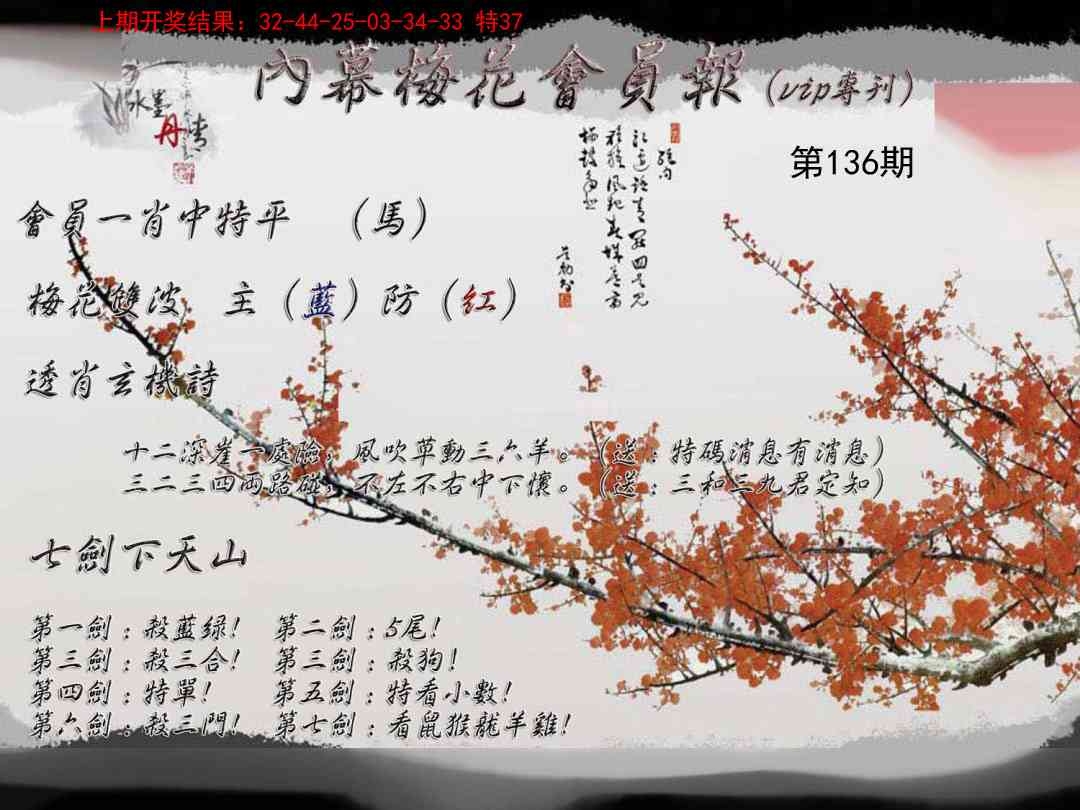 上期开奖结果：32-44-25-03-34-33 特37
內幕梅花會員報(vip專刊)
水墨
丹
情
第136期
會員一肖中特平 （馬）
梅花雙波 主（藍）防（红）
透肖玄機詩
十二深崖一處險，風吹草動三六羊。（送：特碼消息有消息）
三二三四兩路碰，不左不右中下懷。（送：三和三九君定知）
七劍下天山
第一劍：殺藍绿！ 第二劍：5尾！
第三劍：殺三合！ 第三劍：殺狗！
第四劍：特單！ 第五劍：特看小數！
第六劍：殺三門！ 第七劍：看鼠猴龍羊雞！